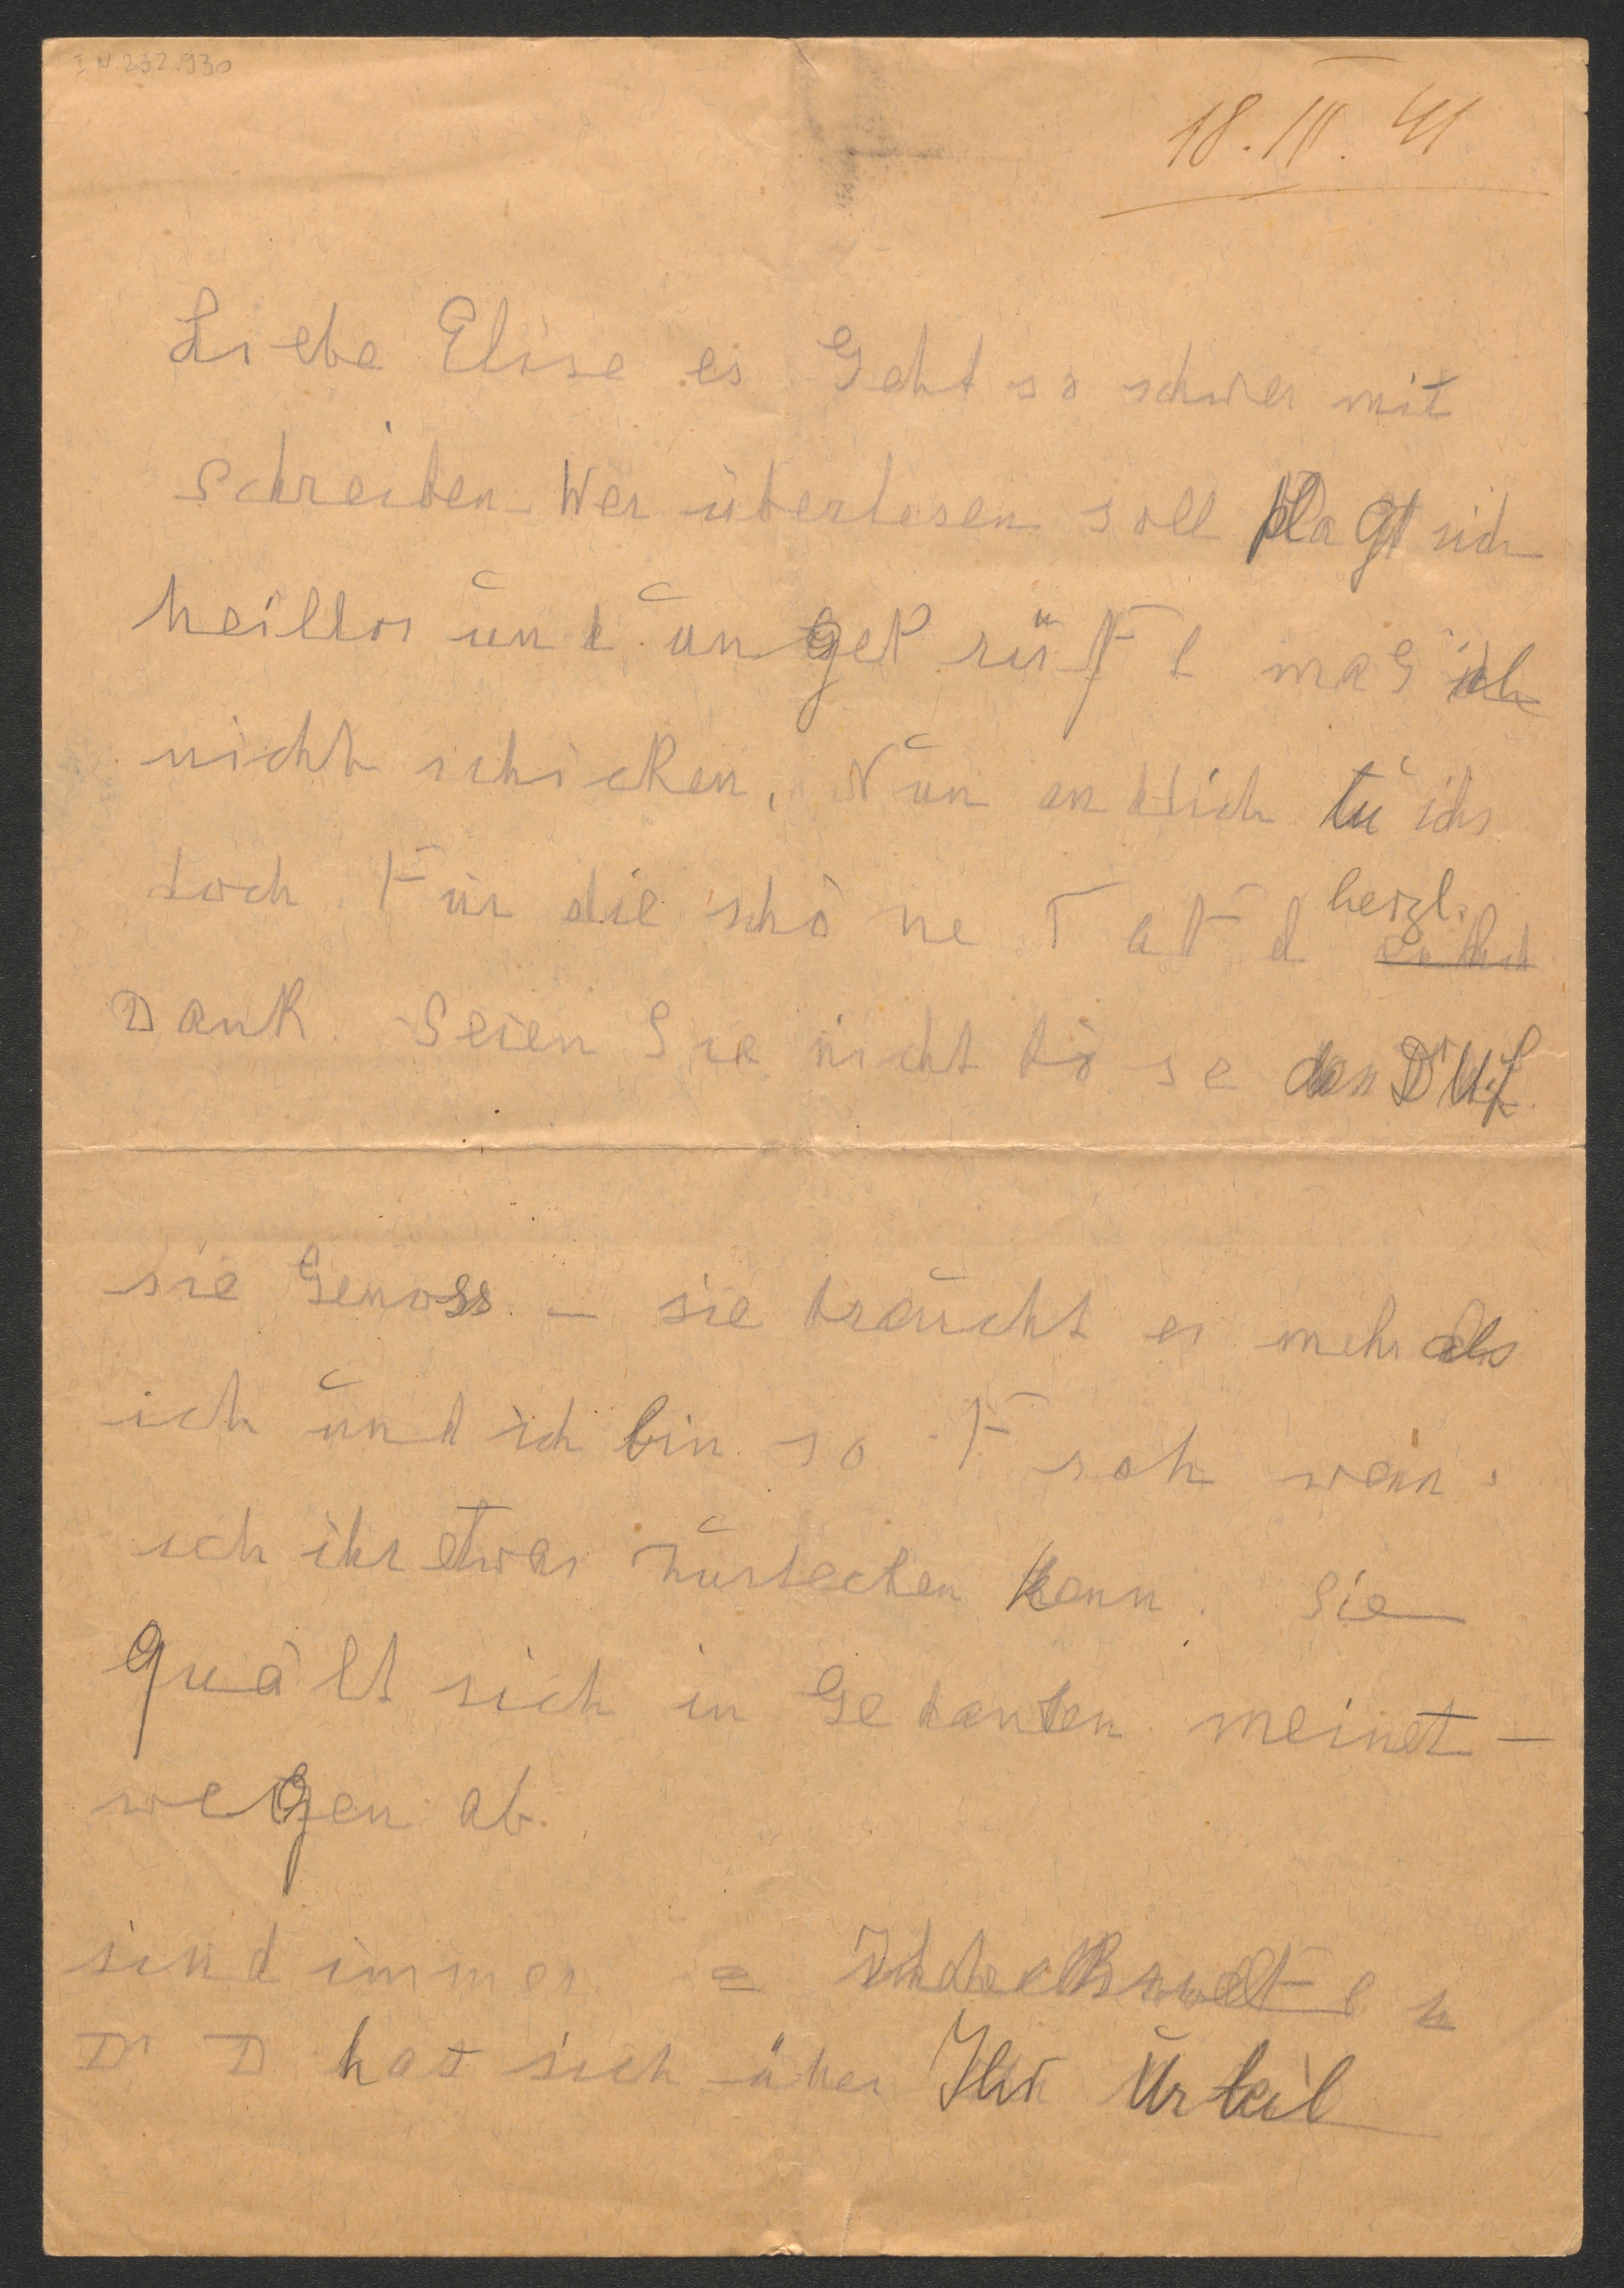 I N. 232.930
18. III. 41
Liebe Elise es Geht so schwer mit
schreiben Wer überlesen soll plagt sich
heillos und ungeprüft mag ich
nicht schicken, Nun endlich tu ichs
doch. Für die schöne Tat d herzl.
Dank. Seien Sie nicht böse den Dr
sie Genoss – sie braucht es mehr als
ich und ich bin so Froh wenn
ich ihr etwas zustecken kann. Sie
quält sich in Gedanken meinet-
wegen ab.
sind immer =
Dr D hat sich über Ihr Urteil